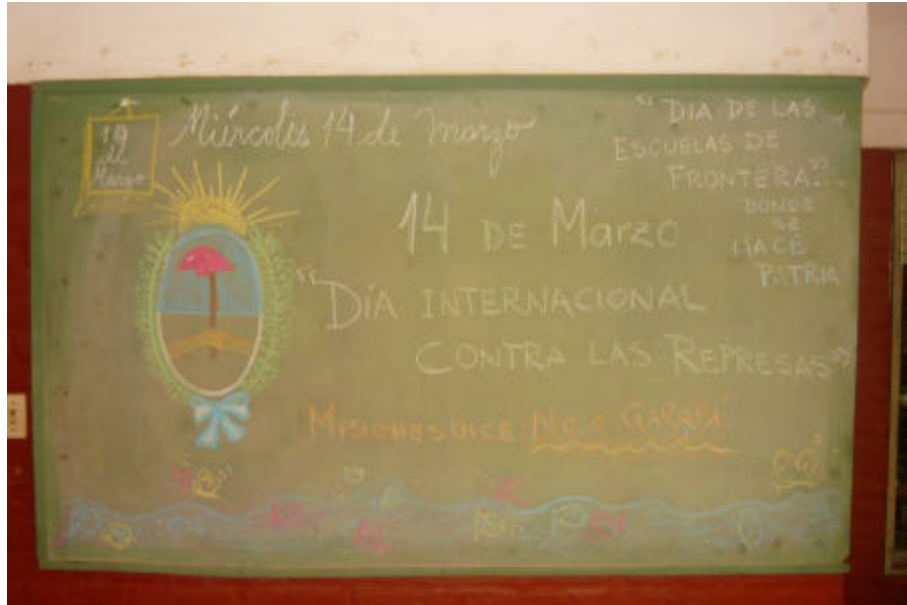 Miércoles 14 de Marzo
de
Marzo
"DIA DE LAS
ESCUELAS DE
FRONTERA"
DONDE
SE
HACE
PATRIA
14 DE Marzo
"DÍA INTERNACIONAL
CONTRA LAS REPRESAS"
MISIONES DICE No a GARABÍ